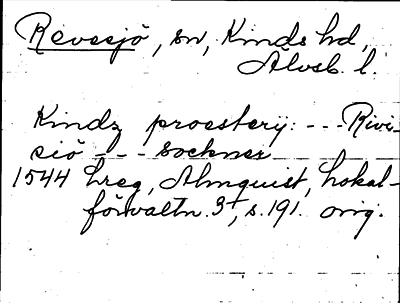 Revesjö, sn, Kinds hd,
Älvsb. l.
Kindz proestery: --- Rivi-
siö --- sockner
1544 Lreg, Almquist, Lokal-
förvaltn. 3¹, s. 191. orig.